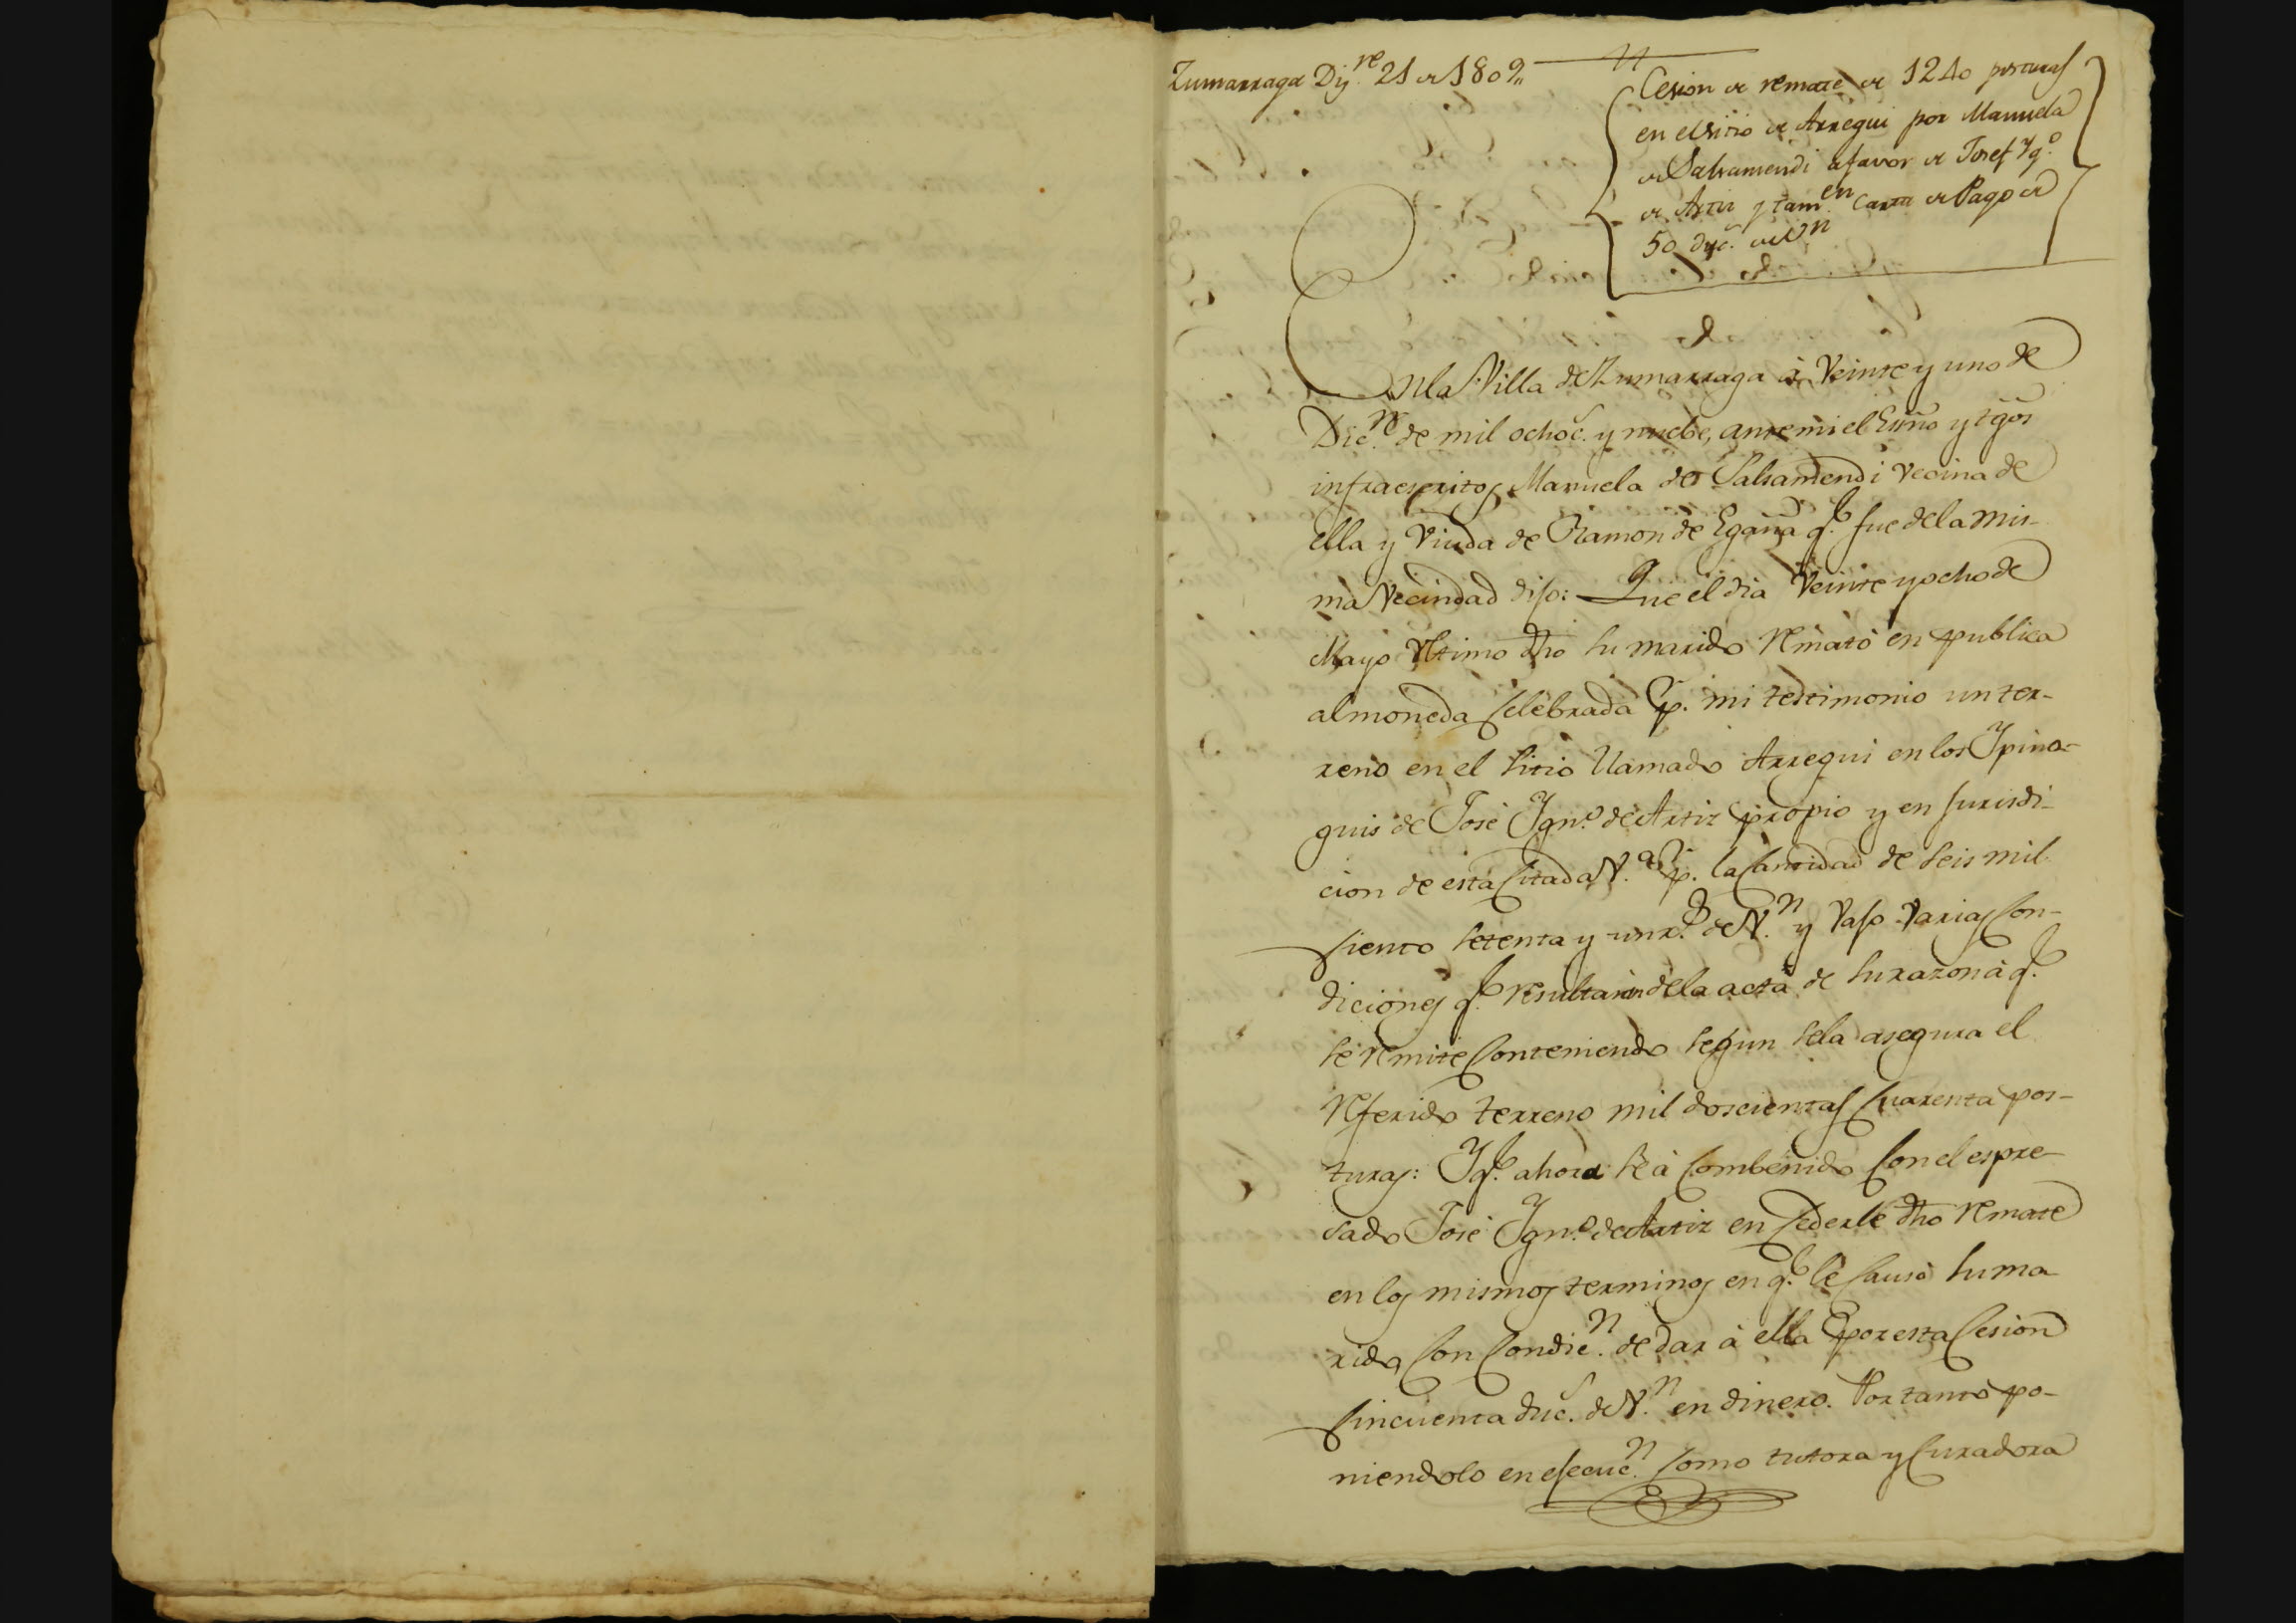 Zumarraga Diz.re 21 de 1809,,
Cesion de remate de 1240 posturas
en el sitio de Arregui por Manuela
de Salsamendi a favor de Josef Yg.o
de Artiz y tam.en Carta de Pago de
50 duc.s de V.n
En la Villa de Zumarraga à Veinte y uno de
Dic.re de mil ochoc.s y nuebe, ante mi el Esñno y tgõs
infraescritos Manuela de Salsamendi Vecina de
ella y Viuda de Ramon de Egaña q.e fue de la mis-
ma Vecindad dijo: Que el dia Veinte y ocho de
Mayo Vltimo dho su marido Remató en publica
almoneda Selebrada p.r mi testimonio un ter-
reno en el sitio llamado Arregui en los Ypina-
guis de José Ygn.o de Artiz propio y en Jurisdi-
cion de esta Citada V.a p.r la Cantidad de seis mil
Siento setenta y un r.s de V.n y Vajo Varias Con-
diciones q.e resultarán de la acta de su razon à q.e
se remite Conteniendo segun se la asegura el
Referido terreno mil doscientas Cuarenta pos-
turas: Y q.e ahora se à Combenido Con el espre-
sado José Ygn.o de Artiz en Cederle dho Remate
en los mismos terminos en q.e le Causó su ma-
rido, Con Condic.n de dar à ella por esta Cesion
Sincuenta duc.s de V.n en dinero. Por tanto po-
niendolo en ejecuc.n Como tutora y Curadora